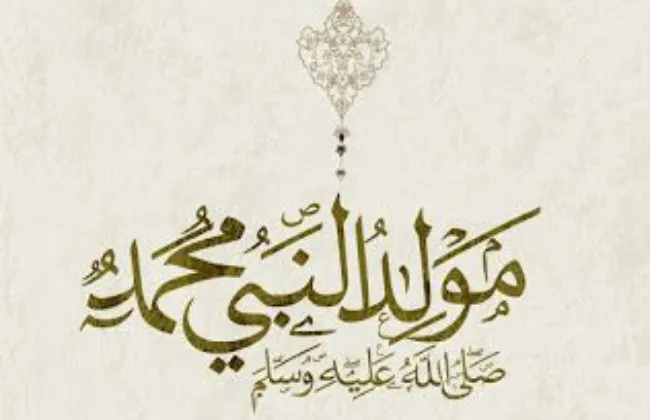 مَولِدُ النَّبِي مُحمَّد
صَلَّى اللَّهُ عَلَيْهِ وَسَلَّمَ